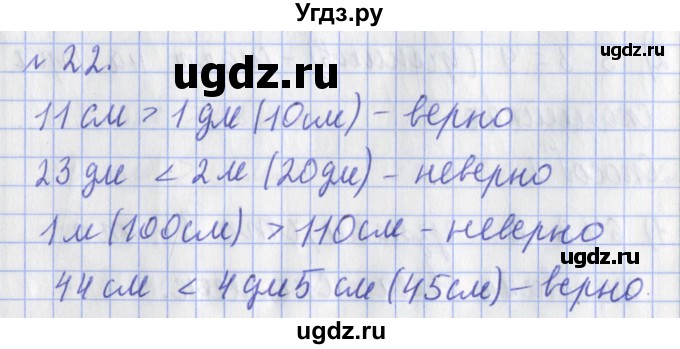 Угдз.ру
№ 22.
ugdz.ru
11 см > 1 дм (10 см) – верно
ugdz.ru
23 дм < 2 м (20 дм) – неверно
1 м (100 см) > 110 см – неверно
ugdz.ru
44 см < 4 дм 5 см (45 см) – верно.
ugdz.ru